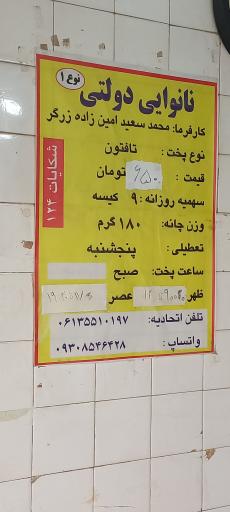 نوع ۱
نانوایی دولتی
کارفرما: محمد سعید امین زاده زرگر
نوع پخت: تافتون
قیمت: ۶۵۰ تومان
سهمیه روزانه: ۹ کیسه
وزن چانه: ۱۸۰ گرم
تعطیلی: پنجشنبه
ساعت پخت: صبح
ظهر عصر
تلفن اتحادیه: ۰۶۱۳۵۵۱۰۱۹۷
واتساپ: ۰۹۳۰۸۵۴۶۴۲۸
شکایات ۱۲۴